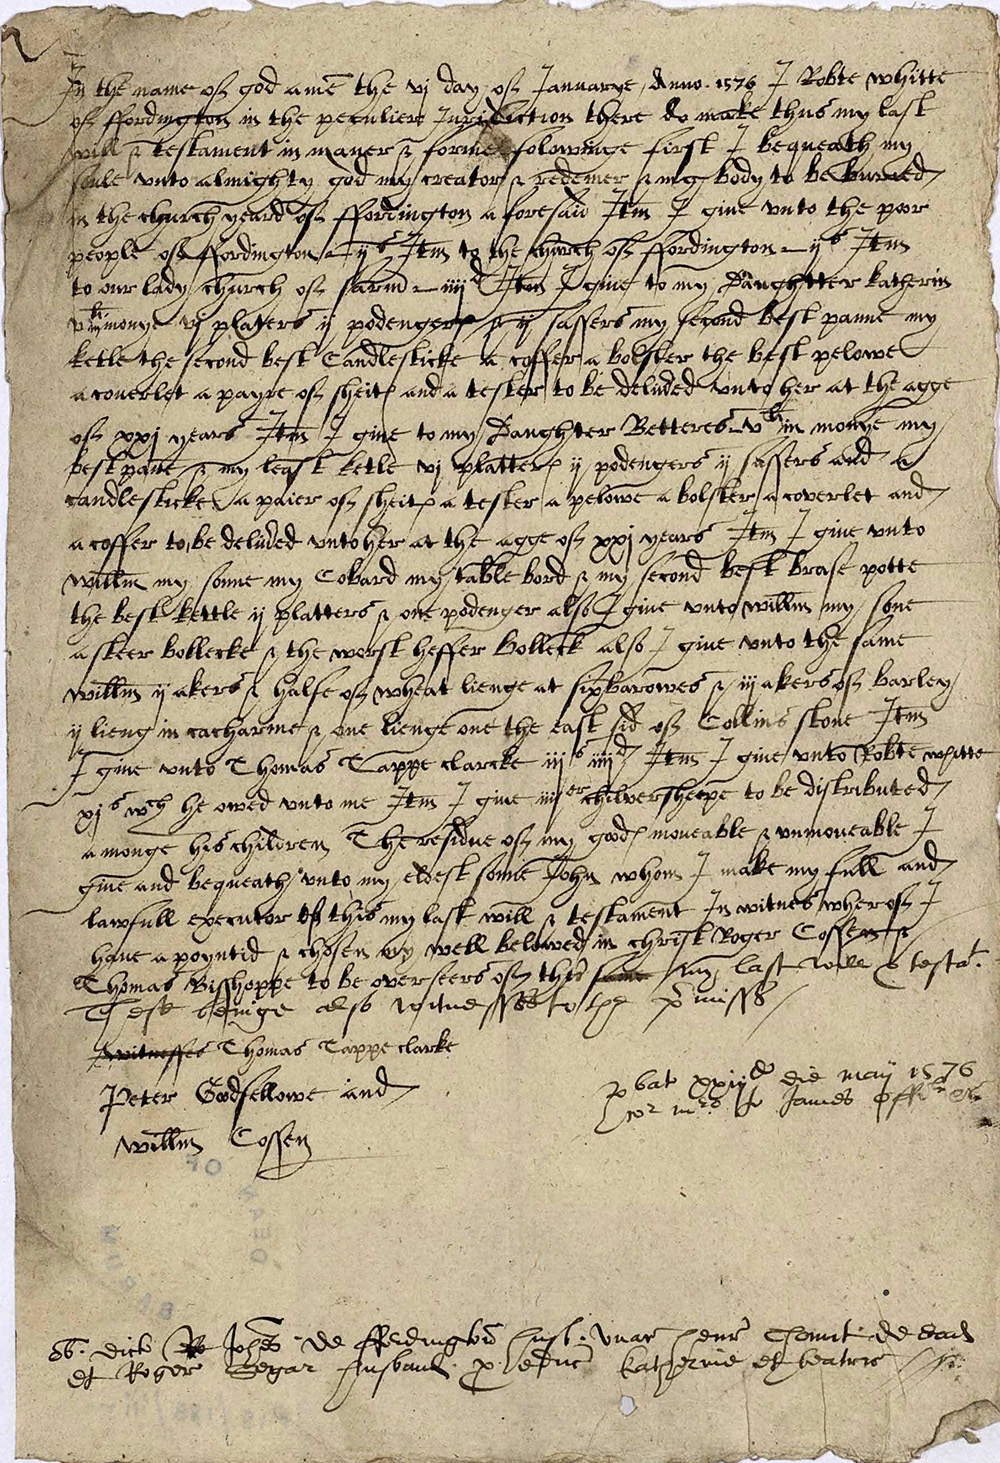 In the name off god amē the vj day off Januarye Anno. 1576 I Robte whitte
off ffordington in the peculier Jurisdiction there do make thus my last
will & testament in maner & forme folowinge first I bequeath my
soule unto almighty god my creator & redemer & my body to be buried
in the church yeard off ffordington aforesaid Itm I give unto the poor
people off ffordington ijs Itm to the church off ffordington ijs Itm
to our lady church off sarum iiijd Itm I give to my Daughtter katherin
vli in monye vj platers ij podengers & ij sassers my second best panne my
ketle the second best Candlesticke a coffer a bolster the best pelowe
a coverlet a payre off sheits and a tester to be delivered unto her at the agge
off xxj years Itm I give to my Daughter Betteres vli in monye my
best pane & my least ketle vj platters ij podengers ij sassers and a
candlesticke a paier off sheits a tester a pelowe a bolster a coverlet and
a coffer to be delivered unto her at the agge off xxj years Itm I give unto
willm my sonne my Cobard my table bord & my second best brase potte
the best kettle ij platters & one podenger also I give unto willm my sone
a steer bollocke & the worst heffer bollock also I give unto the same
willm ij akers & halfe off wheat lienge at sixbarowes & iij akers off barley
ij lieng in catharine & one lienge one the east sid off Collins stone Itm
I give unto Thomas Tappe clarcke iijs iiijd Itm I give unto Robte whitte
xjs wch he owed unto me Itm I give iiijer chilversheepe to be distributed
amonge his children The residue off my goods moveable & unmoveable I
give and bequeath unto my eldest sonne John whom I make my full and
lawfull executor off this my last will & testament In witnes wheroff I
have apoyntid & chosen my well beloved in christ Roger Cossen &
Thomas Bisshoppe to be overseers off this same my last will & testat.
Test beinge also witnesses to the pmisses
witnesses Thomas Tappe clarke
Peter Godfellowe and
willm Cossen
pbat xxiijo die maij 1576
cor mro James
Ob. dict Johes de ffordington husb.
et Roger Segar husband. p educ katherine et beatric